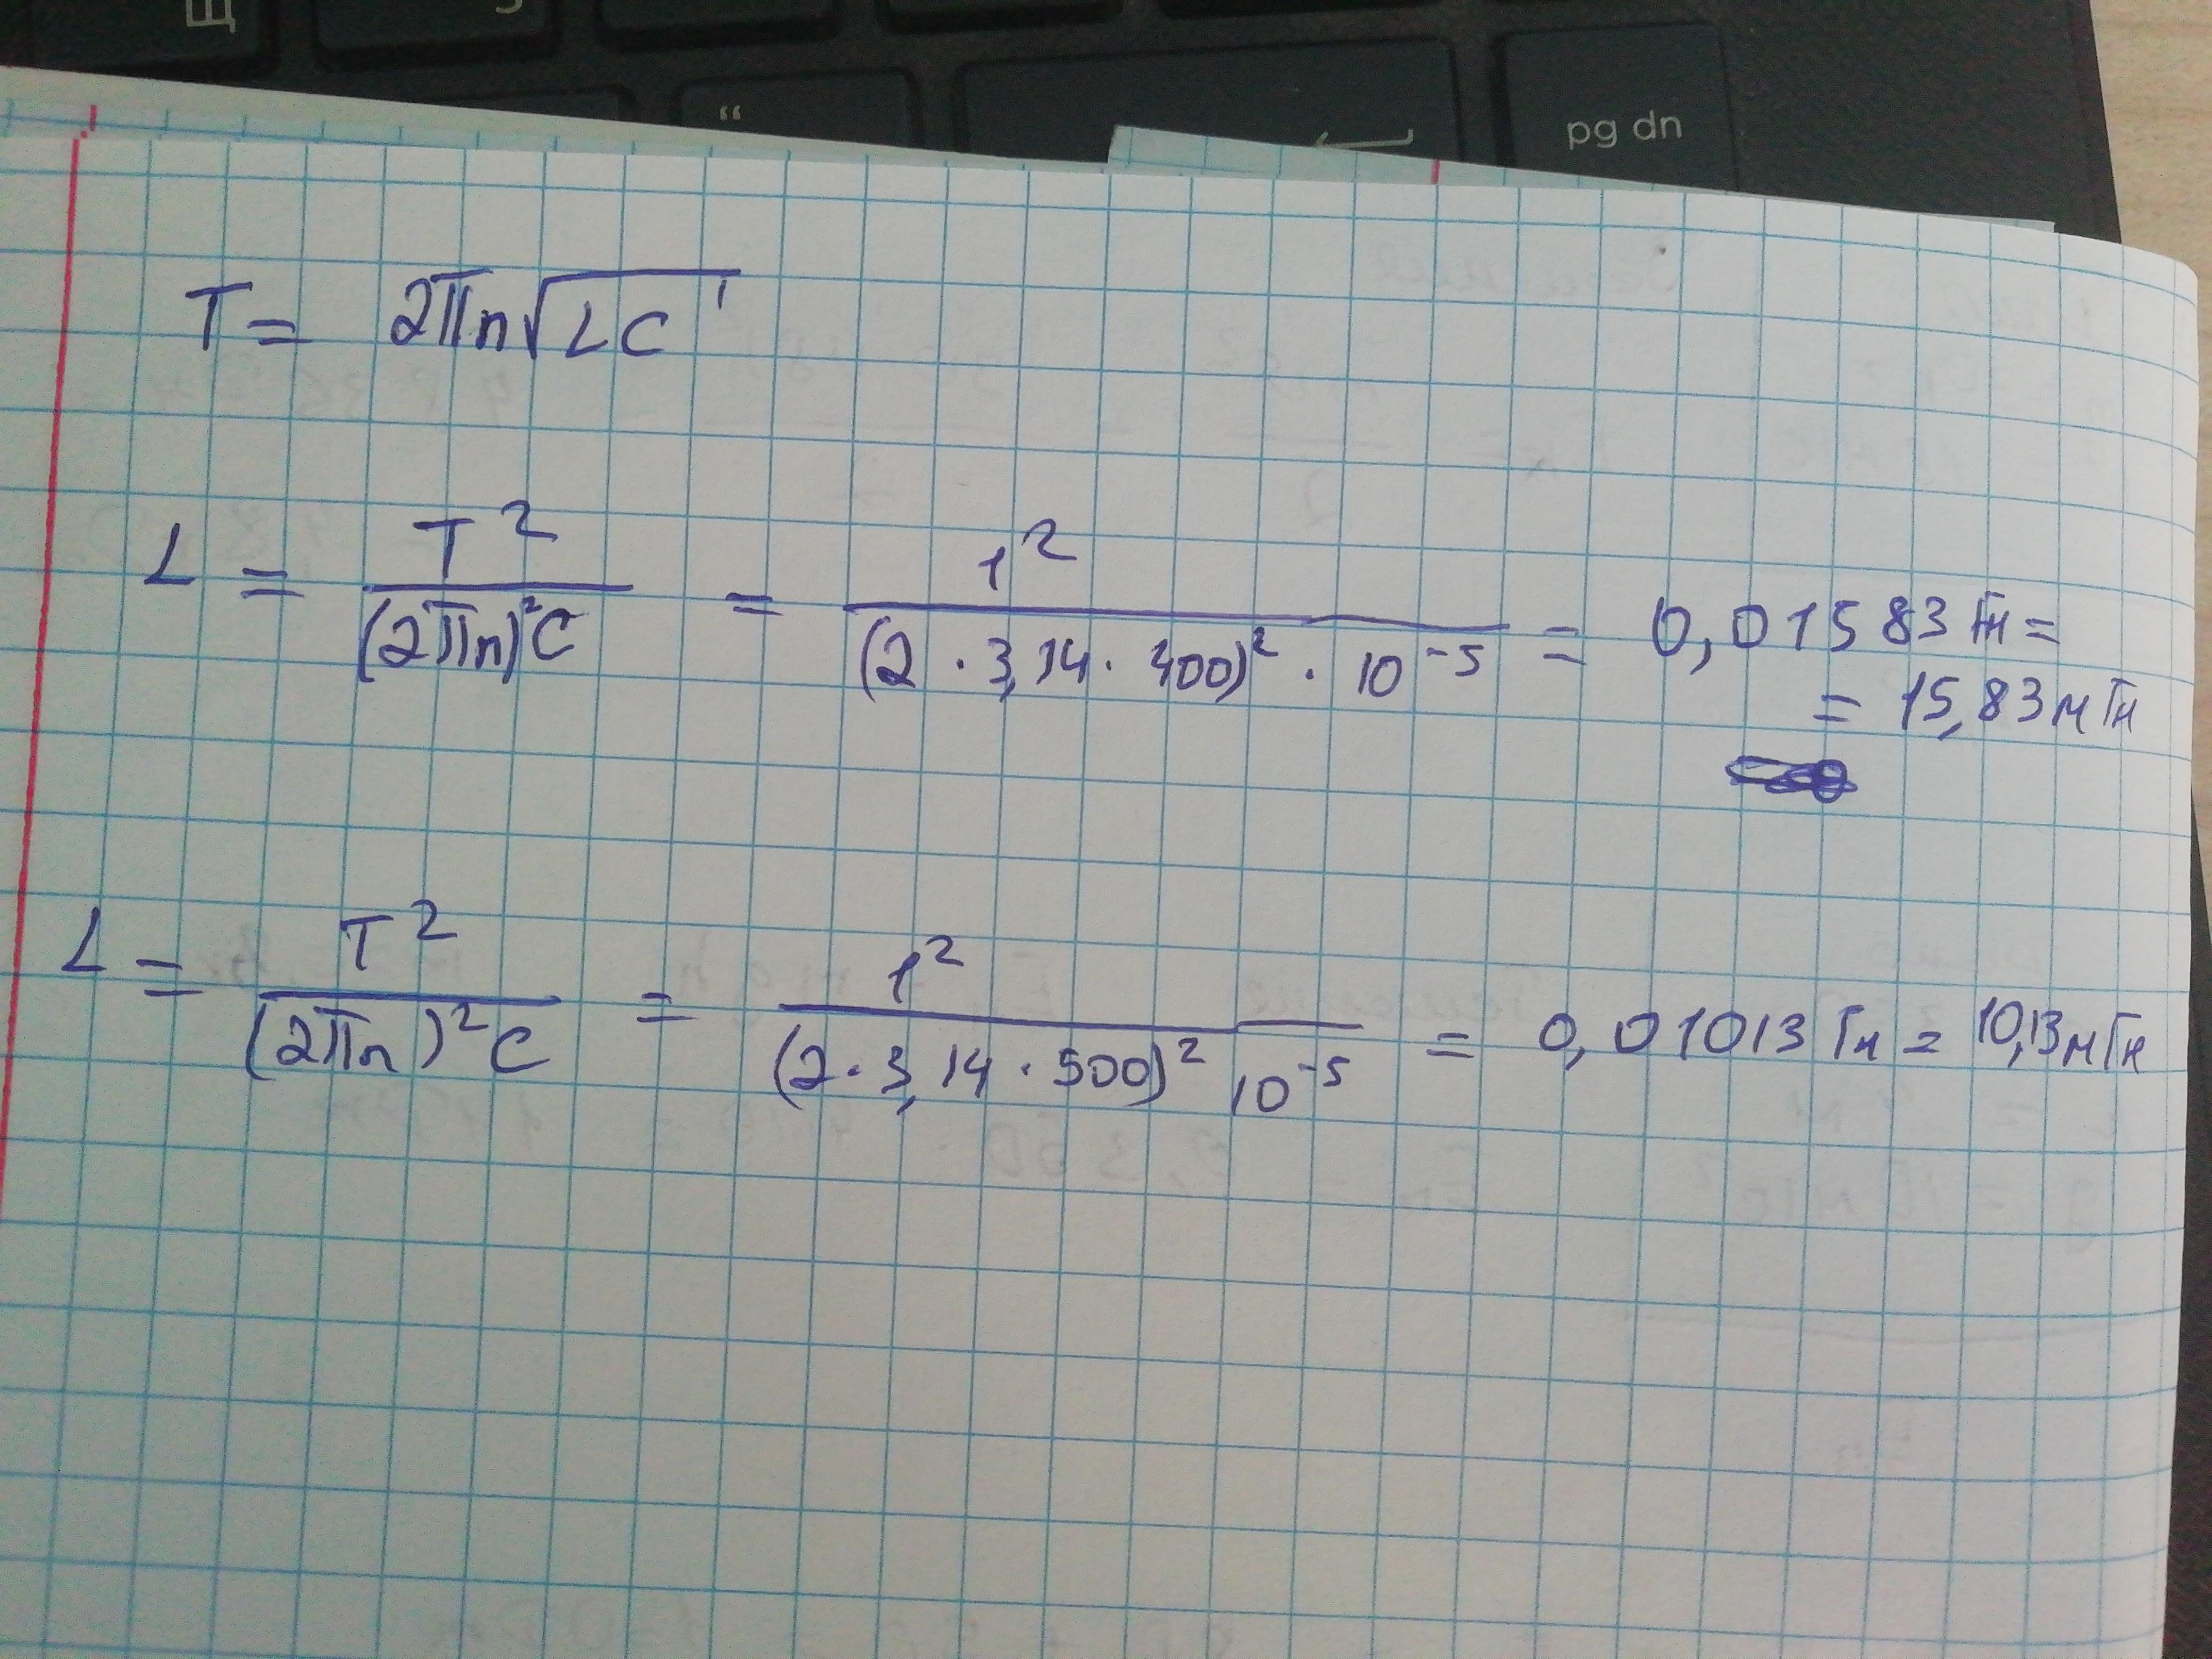 pg dn
T = 2πn√LC
L = T² / (2πn)²C = 1² / (2 · 3,14 · 400)² · 10⁻⁵ = 0,01583 Гн =
= 15,83 мГн
L = T² / (2πn)²C = 1² / (2 · 3,14 · 500)² 10⁻⁵ = 0,01013 Гн = 10,13 мГн